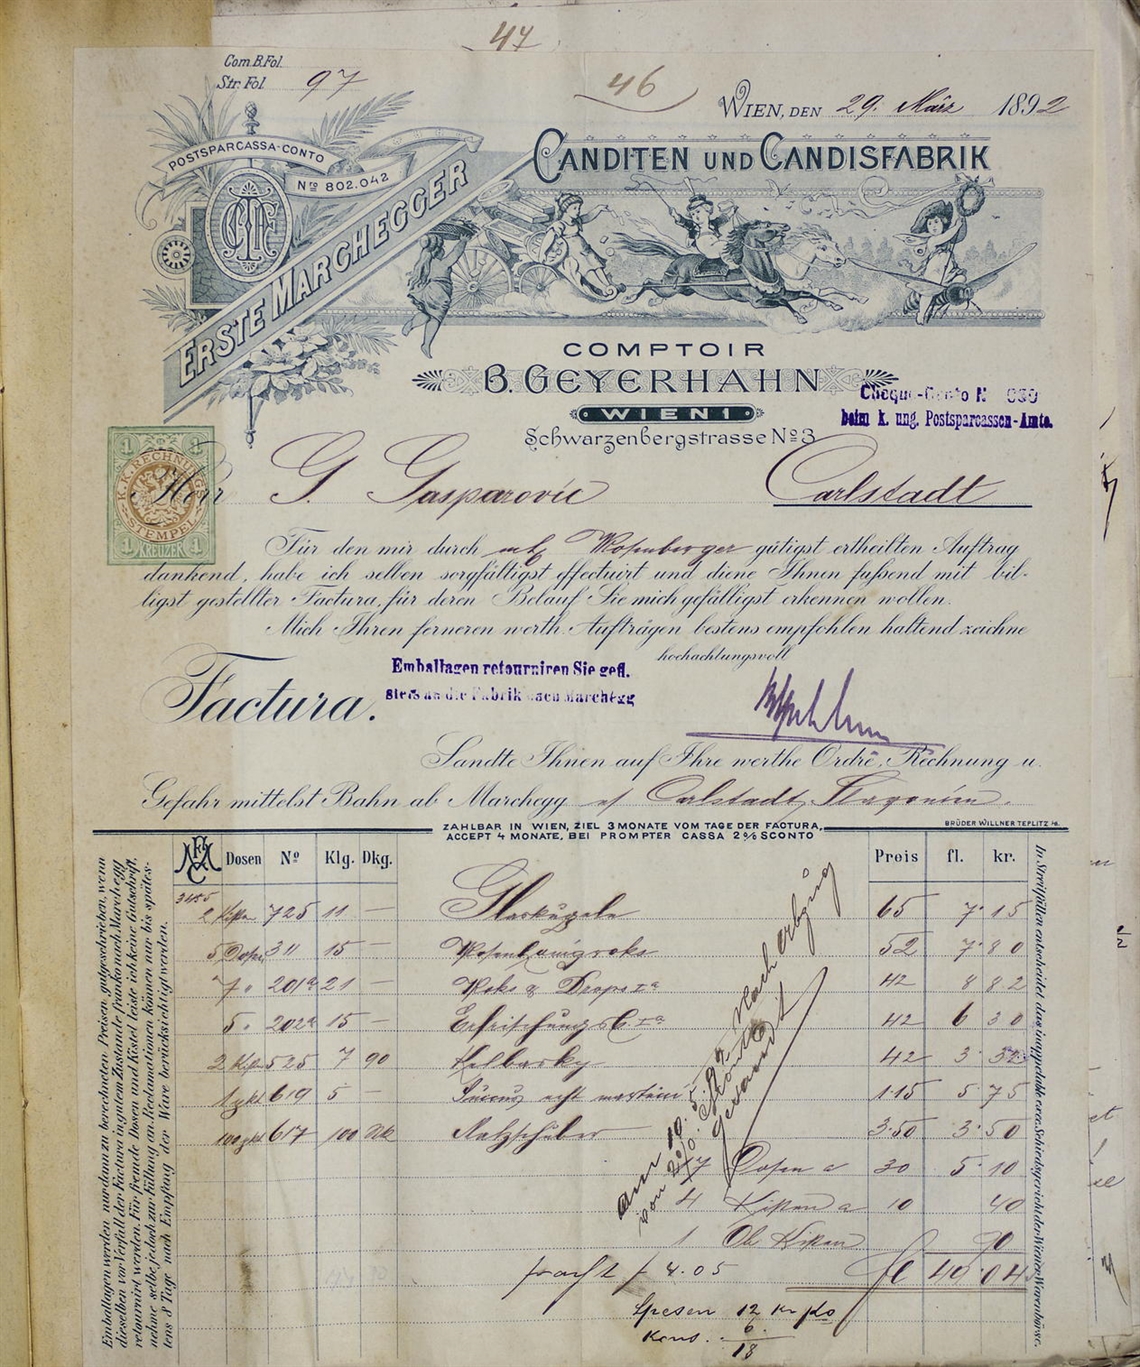 47
Com.B.Fol.
Str. Fol 97
46
WIEN, DEN 29. März 1892
POSTSPARCASSA-CONTO
Nro 802.042
ERSTE MARCHEGGER
CANDITEN UND CANDISFABRIK
COMPTOIR
B. GEYERHAHN
WIEN 1
Schwarzenbergstrasse No 3
Cheque-Conto N
beim k. ung. Postsparcassen-Amte.
1 1
K.K. RECHNUNGS
STEMPEL
1 KREUZER 1
Herr G. Gasparovic Carlstadt
Für den mir durch Rosenberger gütigst ertheilten Auftrag
dankend, habe ich selben sorgfältigst effectuirt und diene Ihnen fußend mit bil-
ligst gestellter Factura, für deren Belauf Sie mich gefälligst erkennen wollen.
Mich Ihren ferneren werth. Aufträgen bestens empfohlen haltend zeichne
hochachtungsvoll
Emballagen retourniren Sie gefl.
stets an die Fabrik nach Marchegg
Factura.
Sandte Ihnen auf Ihre werthe Ordre, Rechnung u.
Gefahr mittelst Bahn ab Marchegg Carlstadt
ZAHLBAR IN WIEN, ZIEL 3 MONATE VOM TAGE DER FACTURA,
ACCEPT 4 MONATE, BEI PROMPTER CASSA 2% SCONTO
BRÜDER WILLNER TEPLITZ
Dosen No Klg. Dkg. Preis fl. kr.
2 725 11 — 65 7 15
5 Dosen 311 15 — 52 7 80
7 " 201a 21 — Roks & Drops Ia 42 8 82
5 " 202a 15 — Erfrischungs Ia 42 6 30
2 525 7 90 42 3 32
1 619 5 — 1.15 5 75
100 617 100 3.50 3 50
17 Dosen a 30 5 10
4 Kisten a 10 40
1 Kisten 90
fl 49 04
Fracht f 4.05
Spesen 12 Kr
6
18
Emballagen werden nur dann zu berechneten Preisen gutgeschrieben, wenn
dieselben vor Verfall der Factura in gutem Zustande franko nach Marchegg
retournirt werden. Für fremde Dosen und Kistel leiste ich keine Gutschrift,
nehme selbe jedoch zur Füllung an. Reclamationen können nur bis spätes-
tens 8 Tage nach Empfang der Ware berücksichtigt werden.
In Streitfällen entscheidet das inappelable exec. Schiedsgericht der Wiener Warenbörse.